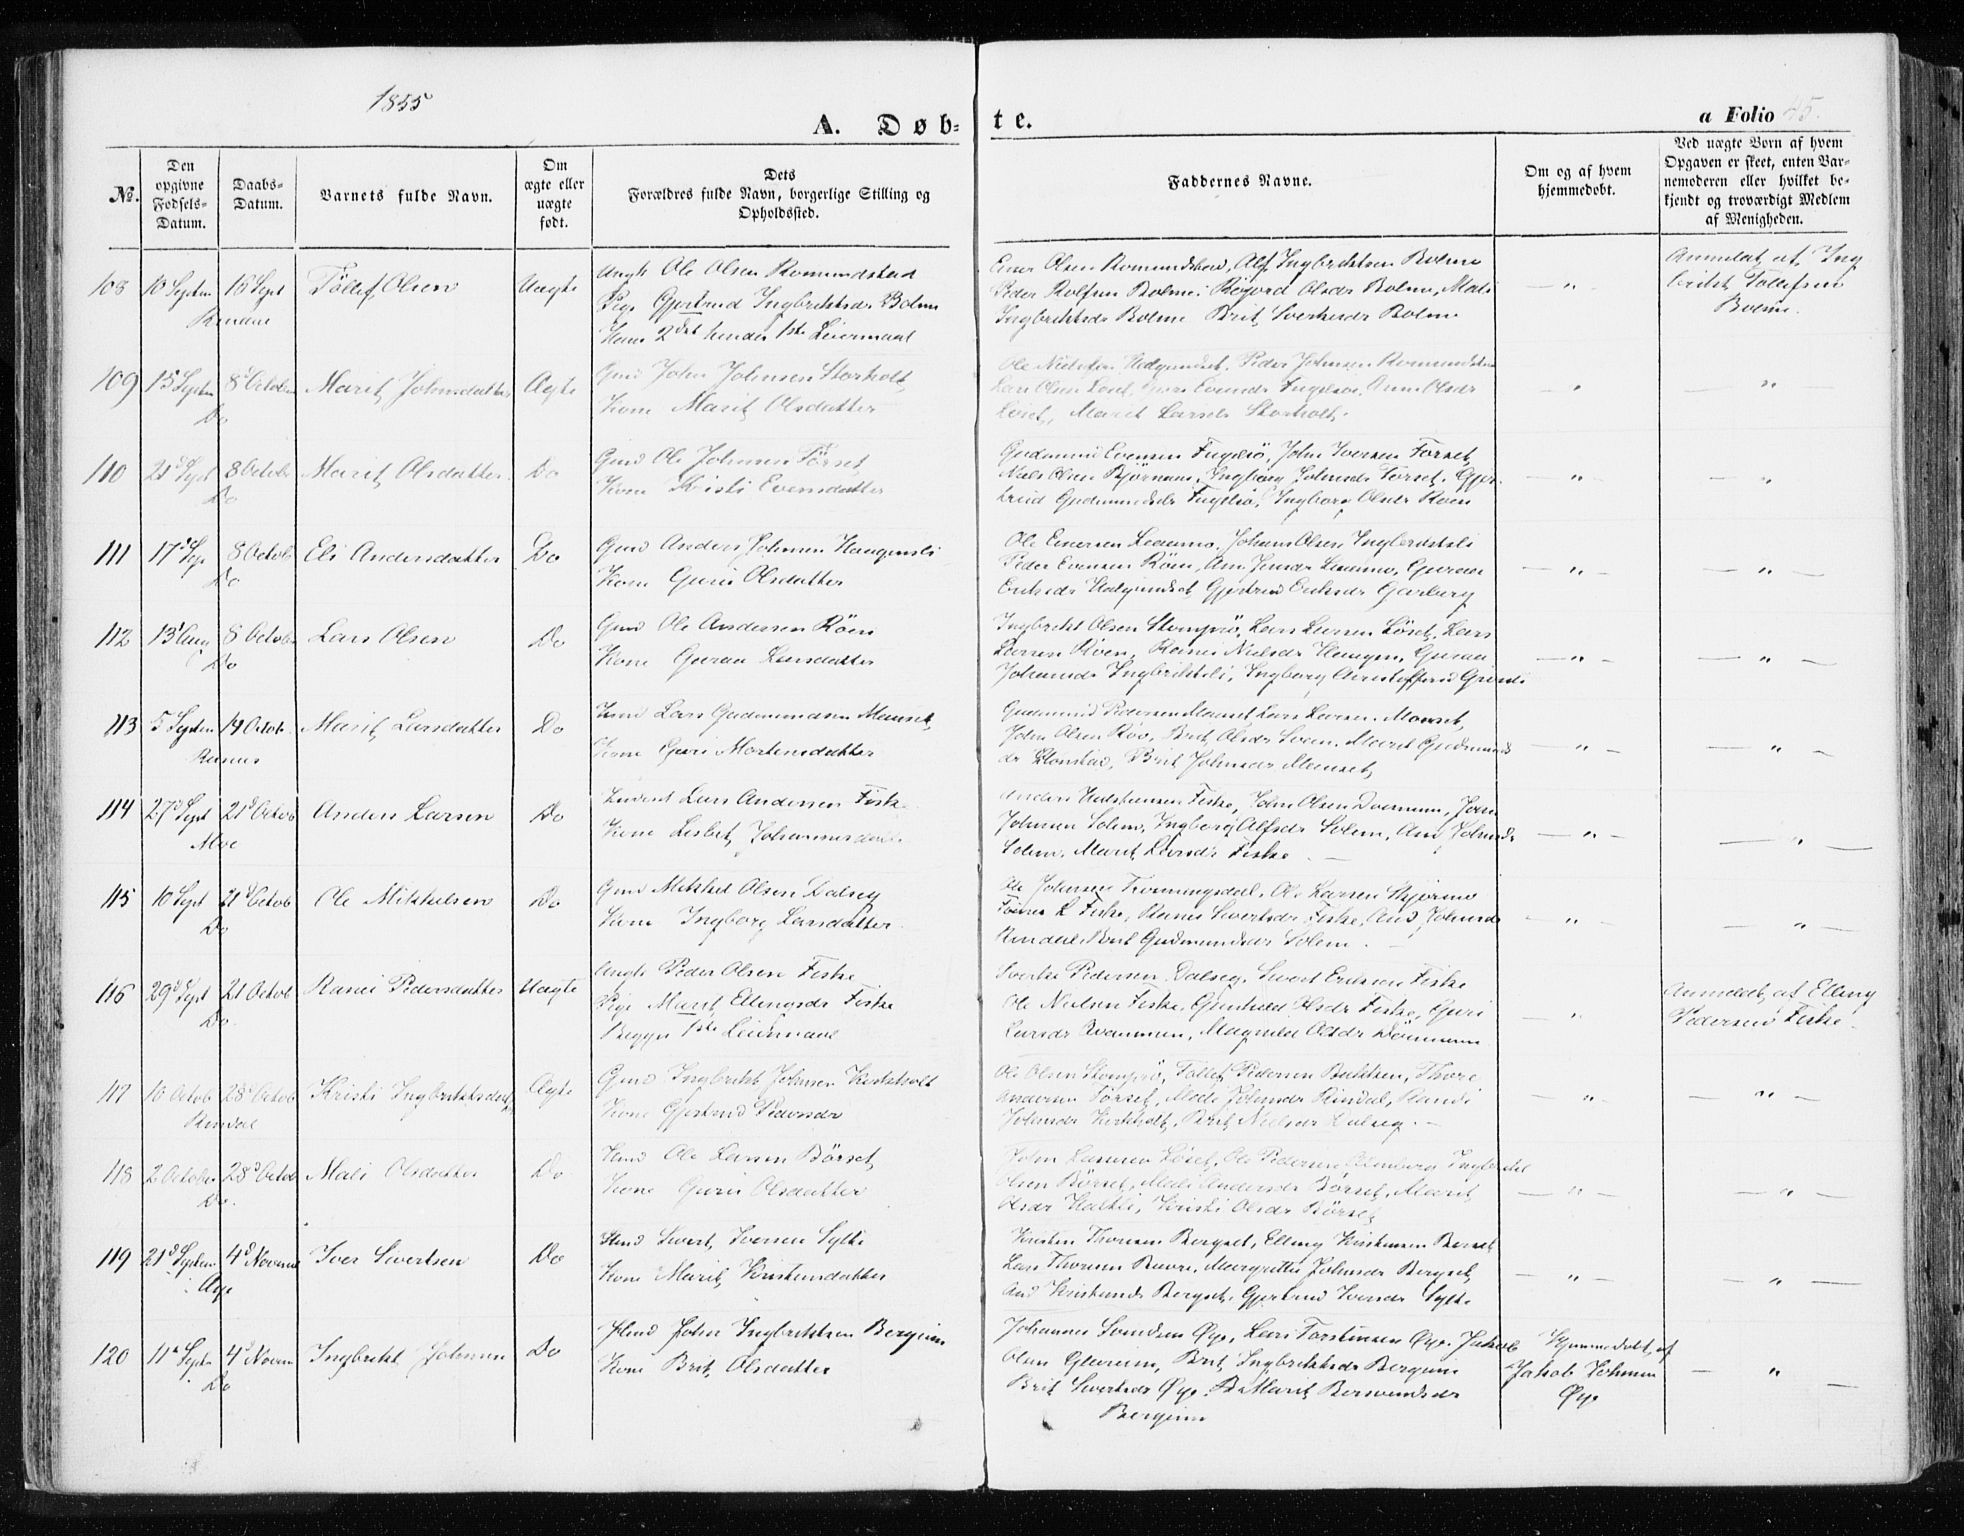 1855
A. Døb-
te.
a Folio 45.
No.
Den opgivne Fødsels-Datum.
Daabs-Datum.
Varnets fulde Navn.
Om ægte eller uægte født.
Dets Forældres fulde Navn, borgerlige Stilling og Opholdssted.
Faddernes Navne.
Om og af hvem hjemmedøbt.
Ved uægte Børn af hvem Opgaven er skeet, enten Barnemoderen eller hvilket bekjendt og troværdigt Medlem af Menigheden.
108 10 Septem 16 Sept Tøllef Olsen Uægte
Rindal
Ungk Ole Olsen Romundstad
Pige Gjertrud Ingbriktsdr Bolme
Hans 2det hendes 1ste Leiermaal
Einer Olsen Romundstad, Alf Ingbriktsen Bolme
Peder Rolfsen Bolme, Olsdr Bolme, Mali
Ingbriktsdr Bolme Brit Sivertsdr Bolme
— " —
Anmeldt af Ing
brikt Tøllefsen
Bolme.
109 15 Septem 8 October Marit Johnsdatter Ægte
Do
Gmd John Johnsen Storholt
Kone Marit Olsdatter
Peder Johnsen Romundstad
Lars Olsen Løset, Guri Evensdr Fugelsø, Ane Olsdr
Løset, Marit Larsdr Storholt.
110 21 Sept 8 Octobr Marit Olsdatter Do
Do
Gmd Ole Johnsen Førset
Kone Kristi Evensdatter
Gudmund Evensen Fugelsø, John Iversen Førset,
Niels Olsen Bjørnaas, Ingborg Johnsdr Førset, Gjer-
trud Gudmundsdr Fugelsø, Ingborg Olsdr Røen
111 17 Sep 8 Octobr Eli Andersdatter Do
Do
Gmd Anders Johnsen Haugensli
Kone Guru Olsdatter
Ole Einersen Ledamo, Johans Olsen Ingbriktsli
Peder Evensen Røen, Ane Jensdr Ledamo, Guraa
Eriksdr Halgundset Gjertrud Eriksdr Garberg
112 13 Aug 8 Octobr Lars Olsen Do
Do
Gmd Ole Andersen Røen
Kone Guraa Larsdatter
Ingbrikt Olsen Stomprø, Lars Larsen Løset, Lars
Larsen Røen, Ranei Nielsdr Haugen, Guraa
Johansdr Ingbriktsli, Ingborg
113 5 Septem 14 Octob. Marit Larsdatter Do
Lars Gudmundsen Mauset
Kone Guri Mortensdatter
Gudmund Pedersen Mauset, Lars Larsen Mauset,
John Olsen Røv, Brit Olsdr Svean, Marit Gudmunds
dr Brit Johnsdr Mauset,
114 27 Sept 21 Octob Anders Larsen Do
Moe
Inderst Lars Andersen Fiske
Kone Lisbet Johannesdatter
Anders Halstensen Fiske, John Olsen John
Johnsen Solem, Ingborg Alfsdr Solem, Ane Johnsdr
Solem, Marit Larsdr Fiske. —
115 10 Sept 21 Octob Ole Mikkelsen Do
Do
Gmd Mikkel Olsen Dalseg
Kone Ingborg Larsdatter
Ole Johnsen Tronningsdal, Ole Larsen Skjermo
L. Fiske, Ranei Sivertsdr Fiske, Ane Johnsdr
Rindal, Brit Gudmundsdr Solem. —
116 29 Sept 21 Octob Ranei Pedersdatter Uægte
Do.
Ungk Peder Olsen Fiske
Pige Marit Ellingsdr Fiske
Begges 1ste Leiermaal
Sverke Pedersen Dalseg, Sivert Eriksen Fiske
Ole Nielsen Fiske, Gunhild Olsdr Fiske, Guri
Larsdr Magnild Olsdr
Anmeldt af Elling
Pedersen Fiske.
117 10 Octob 28 Octob Kristi Ingbriktsdat Ægte
Rindal
Gmd Ingbrikt Johnsen Kirkholt
Kone Gjertrud Pedersdr
Ole Olsen Stomprø, Tøllef Pedersen Bakken, Thore
Andersen Førset, Johnsdr Rindal, Randi
Johnsdr Kirkholt, Brit Nielsdr Dalseg. —
118 2 October 28 Octob Mali Olsdatter Do
Do.
Hmd Ole Larsen Børset
Kone Guru Olsdatter
John Larsen Løset, Ole Pedersen Ingbrikt
Olsen Børset, Mali Andersdr Børset, Marit
Olsdr Kristi Olsdr Børset,
119 21 Septem 4 Novem Iver Sivertsen Do
Øye
Hmd Sivert Iversen Sylte
Kone Marit Kristensdatter
Kristen Thoresen Bergset, Elling Kristensen Bergset
Lars Thoresen Margrethe Johnsdr Bergset,
Ane Kristensdr Bergset, Gjertrud Iversdr Sylte
120 11 Septe 4 Novem Ingbrikt Johnsen Do
Do
Hmd John Ingbriktsen Bergeim
Kone Brit Olsdatter
Johannes Svendsen Øye, Lars Torstensen Øye, Jakob
Olsen Glærum, Brit Ingbriktsdr Bergeim
Brit Sivertsdr Øye, Marit
Bergeim
Hjemmedøbt af
Jakob Johnsen
Øye